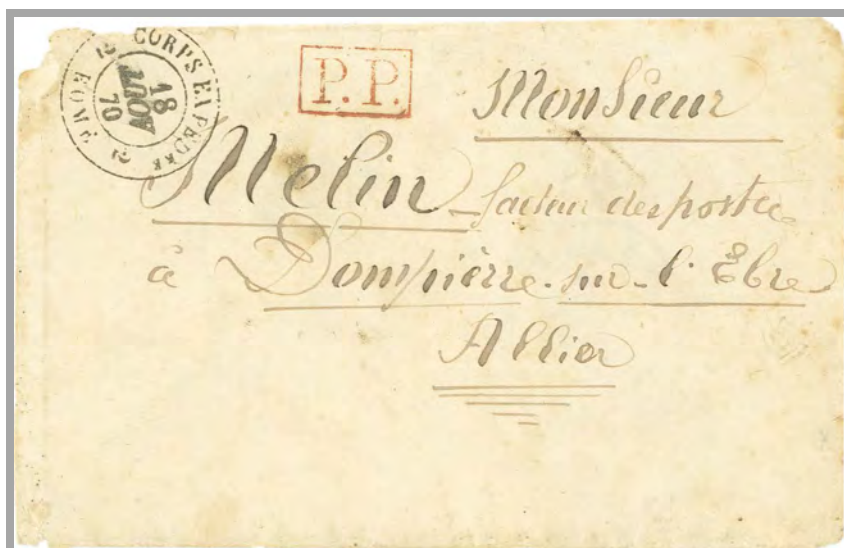 CORPS EXPEDRE
ROME
18
AOUT
70
P.P.
Monsieur
Melin facteur des postes
à Dompièrre-sur-l'Èbre
Allier